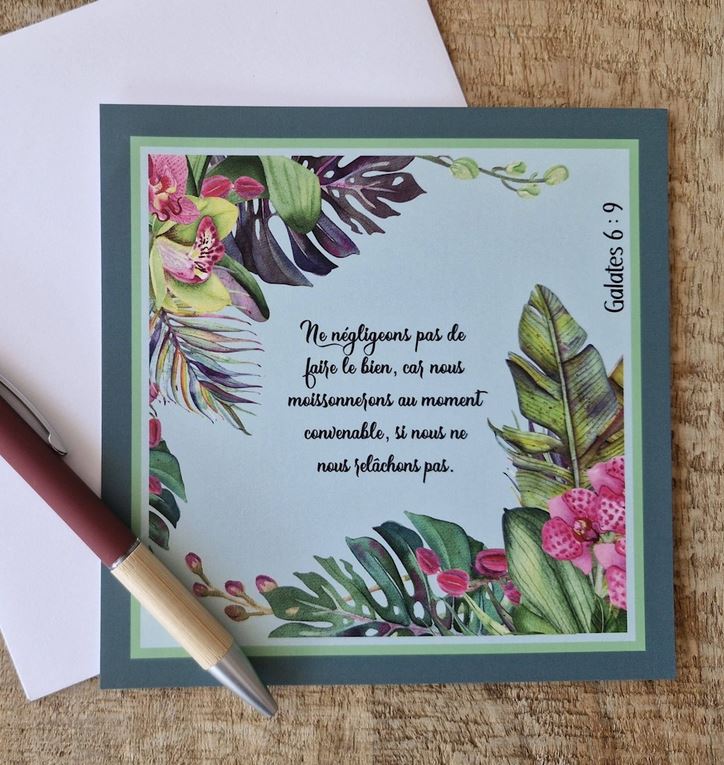 Ne négligeons pas de
faire le bien, car nous
moissonnerons au moment
convenable, si nous ne
nous relâchons pas.
Galates 6 : 9